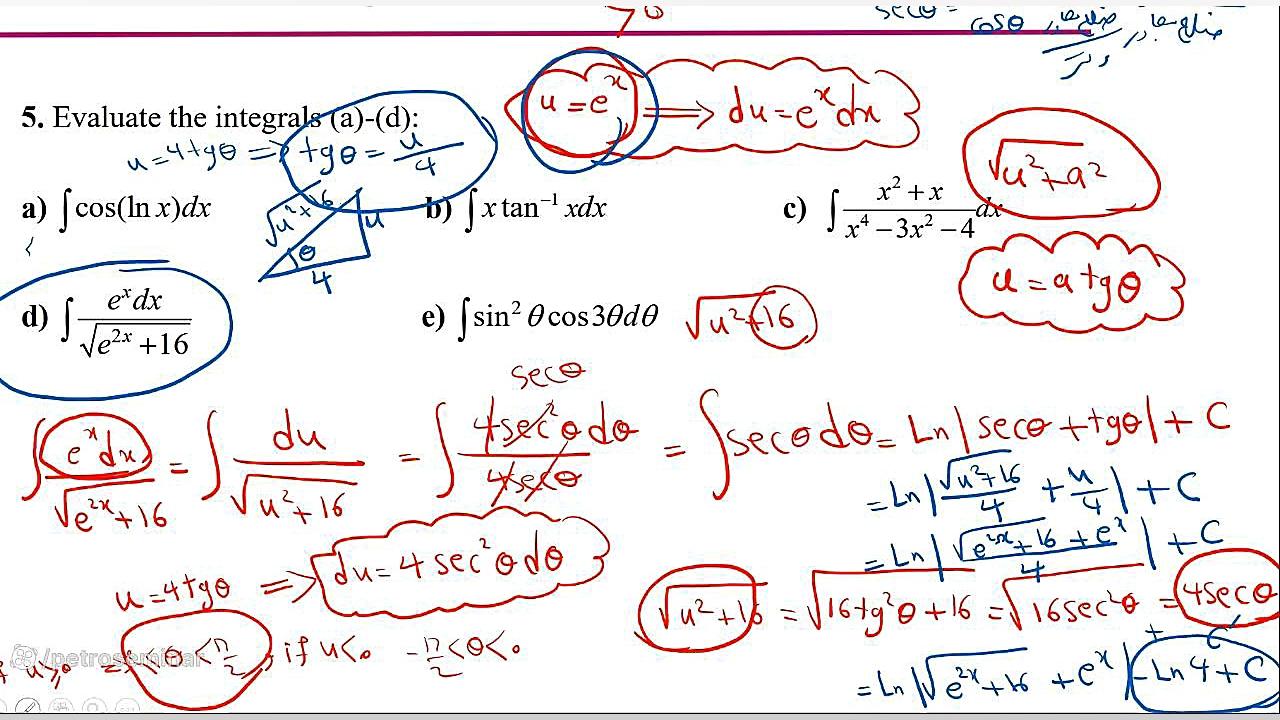 secθ = cosθ
5. Evaluate the integrals (a)-(d):
u = e^x ⟹ du = e^x dx
u = 4tgθ ⟹ tgθ = u/4
√(u² + a²)
a) ∫cos(ln x)dx b) ∫x tan⁻¹ xdx c) ∫(x² + x)/(x⁴ − 3x² − 4) dx
√(u² + 16) u θ 4
u = a tgθ
d) ∫e^x dx/√(e^2x + 16) e) ∫sin² θ cos3θdθ √(u² + 16)
secθ
∫e^x dx/√(e^2x + 16) = ∫du/√(u² + 16) = ∫4sec²θ dθ/4secθ = ∫secθ dθ = Ln|secθ + tgθ| + C
= Ln|√(u² + 16)/4 + u/4| + C
= Ln|(√(e^2x + 16) + e^x)/4| + C
u = 4tgθ ⟹ du = 4 sec²θ dθ
√(u² + 16) = √(16tg²θ + 16) = √(16sec²θ) = 4secθ
/petroseminar
<θ<π/2, if u<0 −π/2<θ<0
= Ln|√(e^2x + 16) + e^x| − Ln4 + C